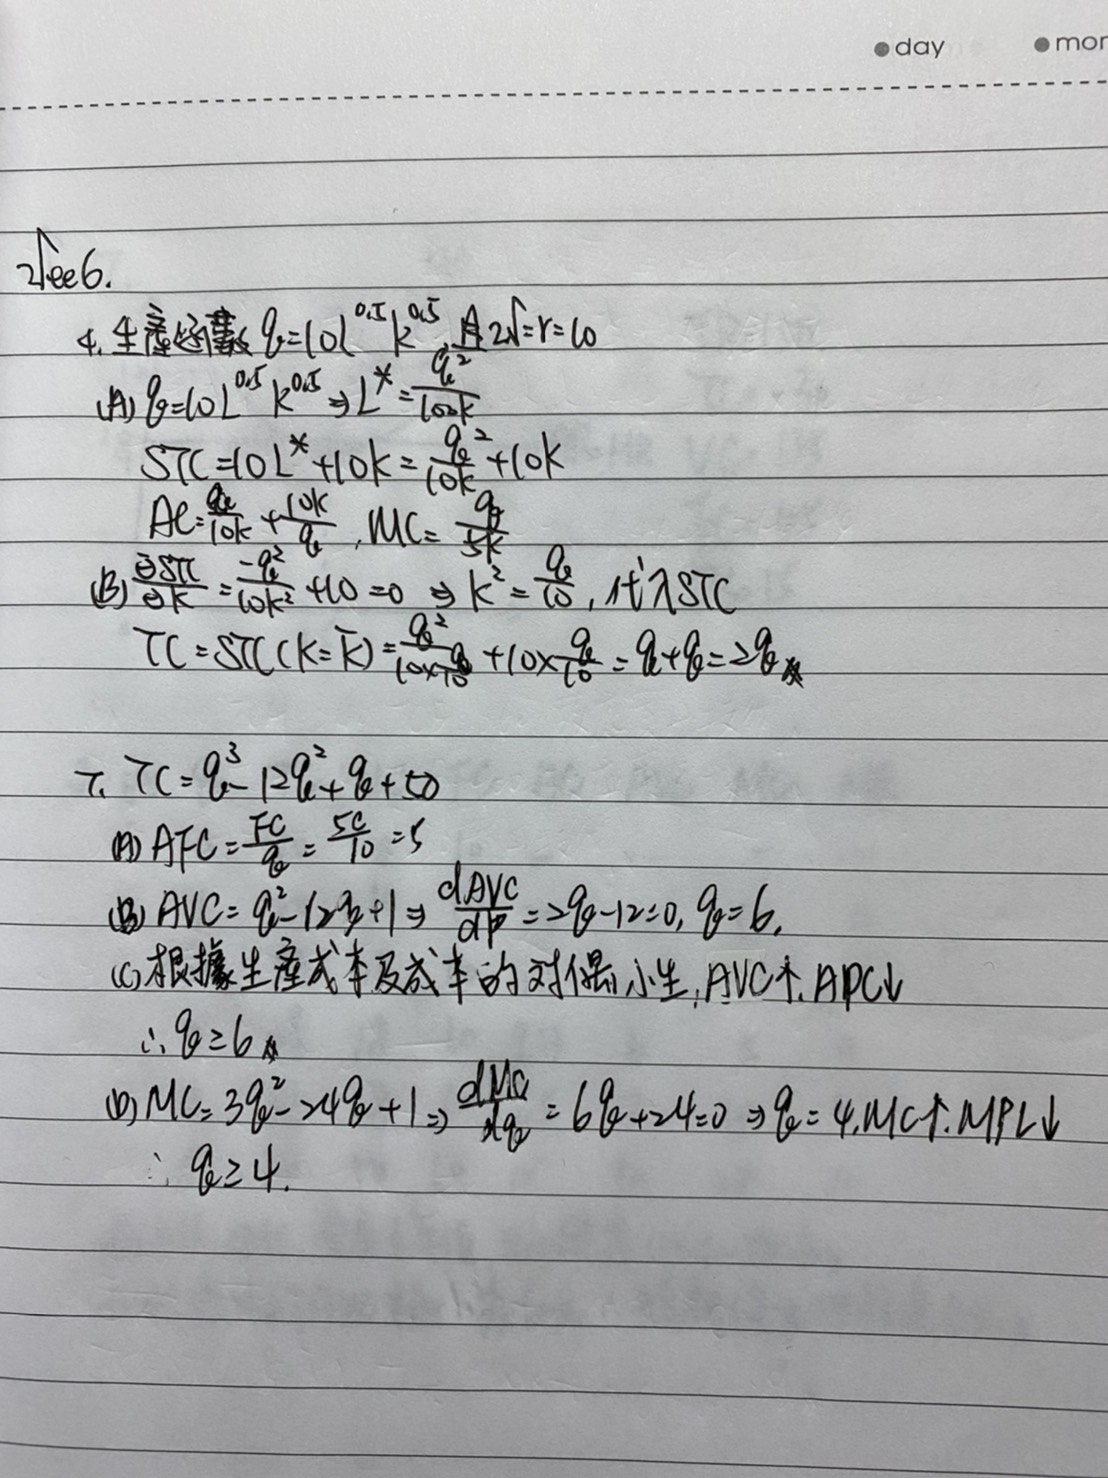 day mor
Week 6.
4. 生產函數 q=10L^0.5 K^0.5, 且 w=r=10
(A) q=10L^0.5 K^0.5 ⇒ L*=q²/100K
STC=10L*+10K=q²/10K+10K
AC=q/10K+10K/q, MC=q/5K
(B) ∂STC/∂K=-q²/10K²+10=0 ⇒ K²=q/10, 代入STC
TC=STC(K=K̄)=q²/(10×q/10)+10×q/10=q+q=2q
7. TC=q³-12q²+q+50
(A) AFC=FC/q=50/10=5
(B) AVC=q²-12q+1 ⇒ dAVC/dP=2q-12=0, q=6.
(C) 根據生產成本及成本的对偶小生, AVC↑. APC↓
∴ q≥6
(D) MC=3q²-24q+1 ⇒ dMC/dq=6q+24=0 ⇒ q=4. MC↑. MPL↓
∴ q≥4.